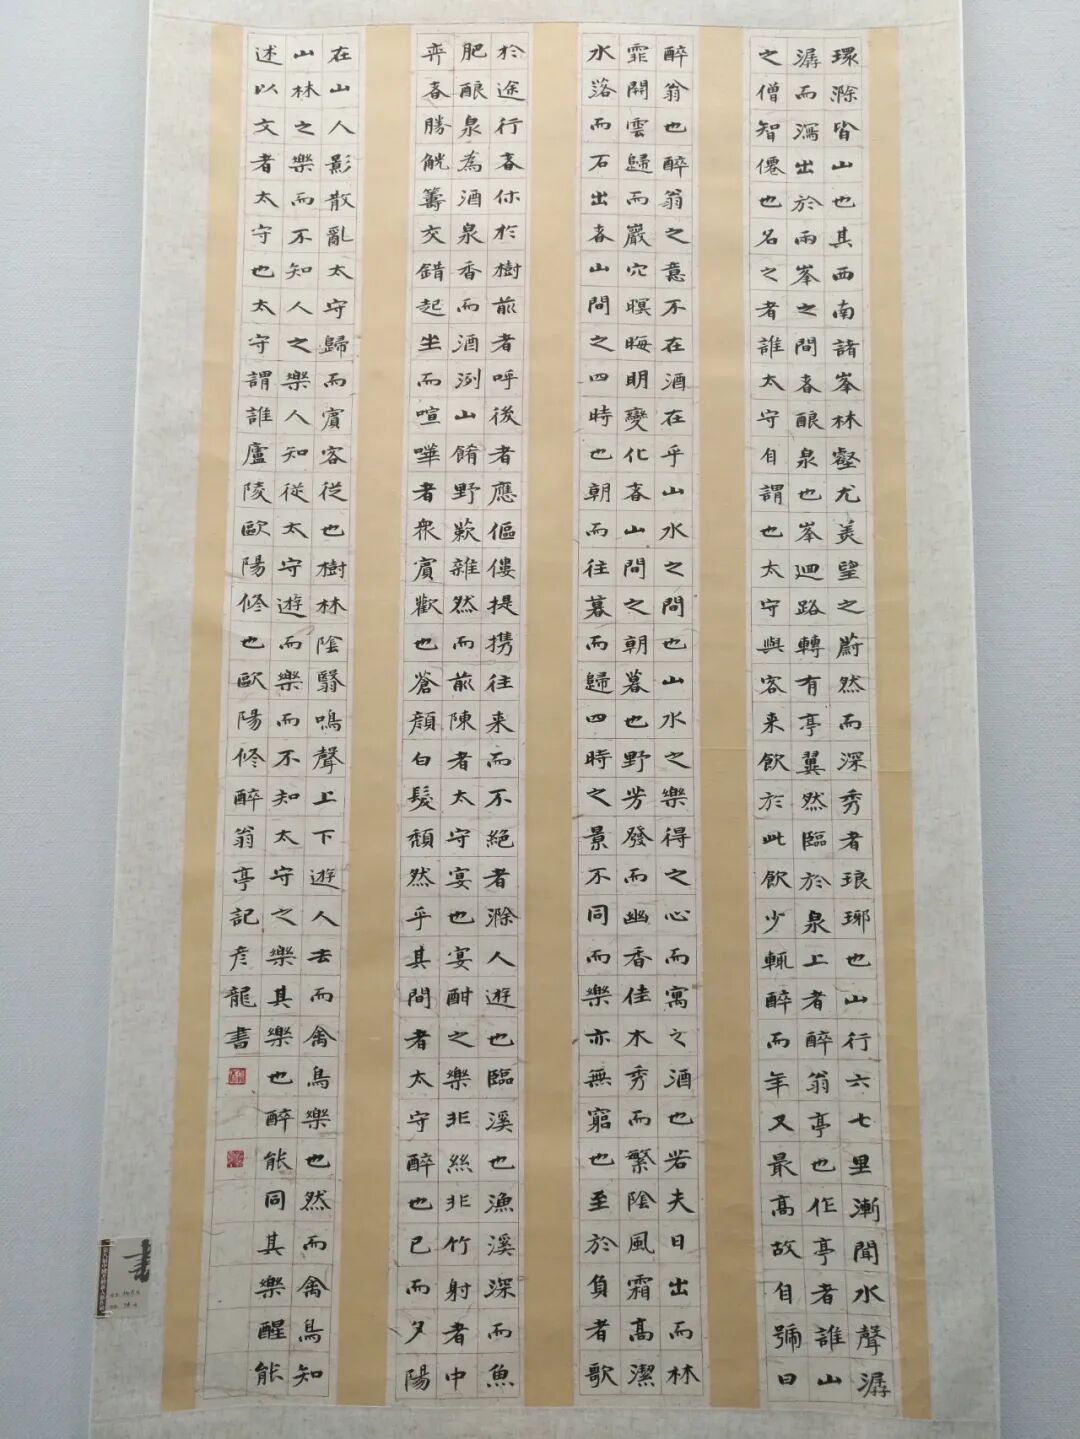 環滁皆山也其西南諸峯林壑尤美望之蔚然而深秀者琅琊也山行六七里漸聞水聲潺
潺而瀉出於兩峯之間者酿泉也峯迴路轉有亭翼然臨於泉上者醉翁亭也作亭者誰山
之僧智僊也名之者誰太守自謂也太守與客来飲於此飲少輒醉而年又最高故自號曰
醉翁也醉翁之意不在酒在乎山水之間也山水之樂得之心而寓之酒也若夫日出而林
霏開雲歸而巖穴暝晦明變化者山間之朝暮也野芳發而幽香佳木秀而繁陰風霜高潔
水落而石出者山間之四時也朝而往暮而歸四時之景不同而樂亦無窮也至於負者歌
於途行者休於樹前者呼後者應傴僂提携往来而不絕者滁人遊也臨溪也漁溪深而魚
肥酿泉為酒泉香而酒洌山餚野蔌雜然而前陳者太守宴也宴酣之樂非絲非竹射者中
弈者勝觥籌交錯起坐而喧嘩者衆賓歡也蒼顏白髮頹然乎其間者太守醉也已而夕陽
在山人影散亂太守歸而賓客從也樹林陰翳鳴聲上下遊人去而禽鳥樂也然而禽鳥知
山林之樂而不知人之樂人知從太守遊而樂而不知太守之樂其樂也醉能同其樂醒能
述以文者太守也太守謂誰廬陵歐陽修也歐陽修醉翁亭記彦龍書